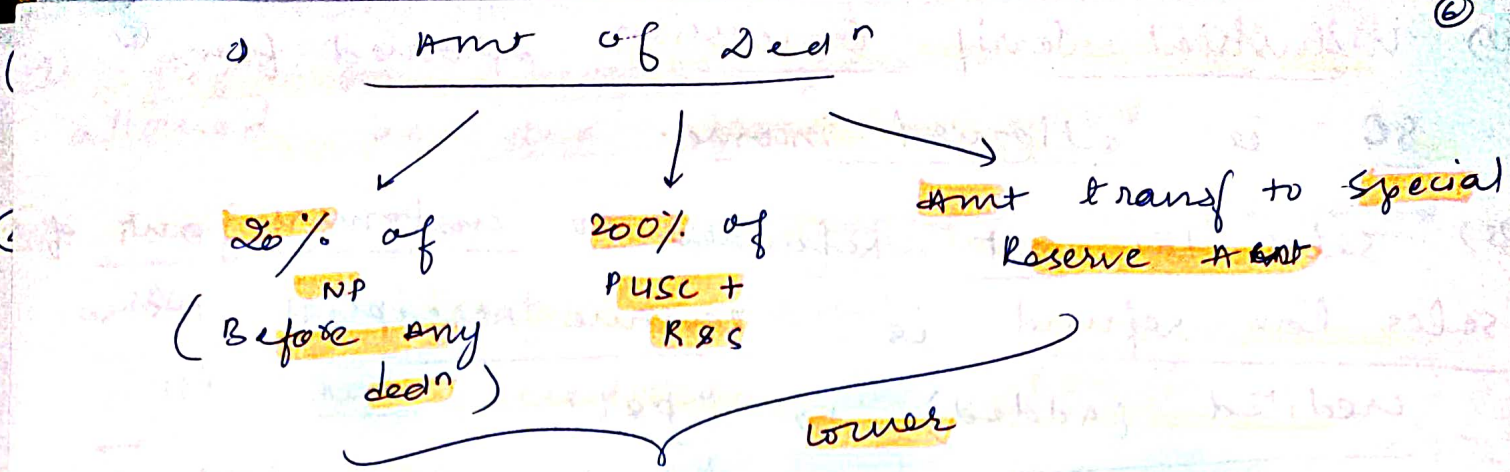 ⑥
Amt of Dedⁿ
20% of
NP
(Before Any
dedⁿ)
200% of
PUSC +
R&S
Amt transf to Special
Reserve A
Lower